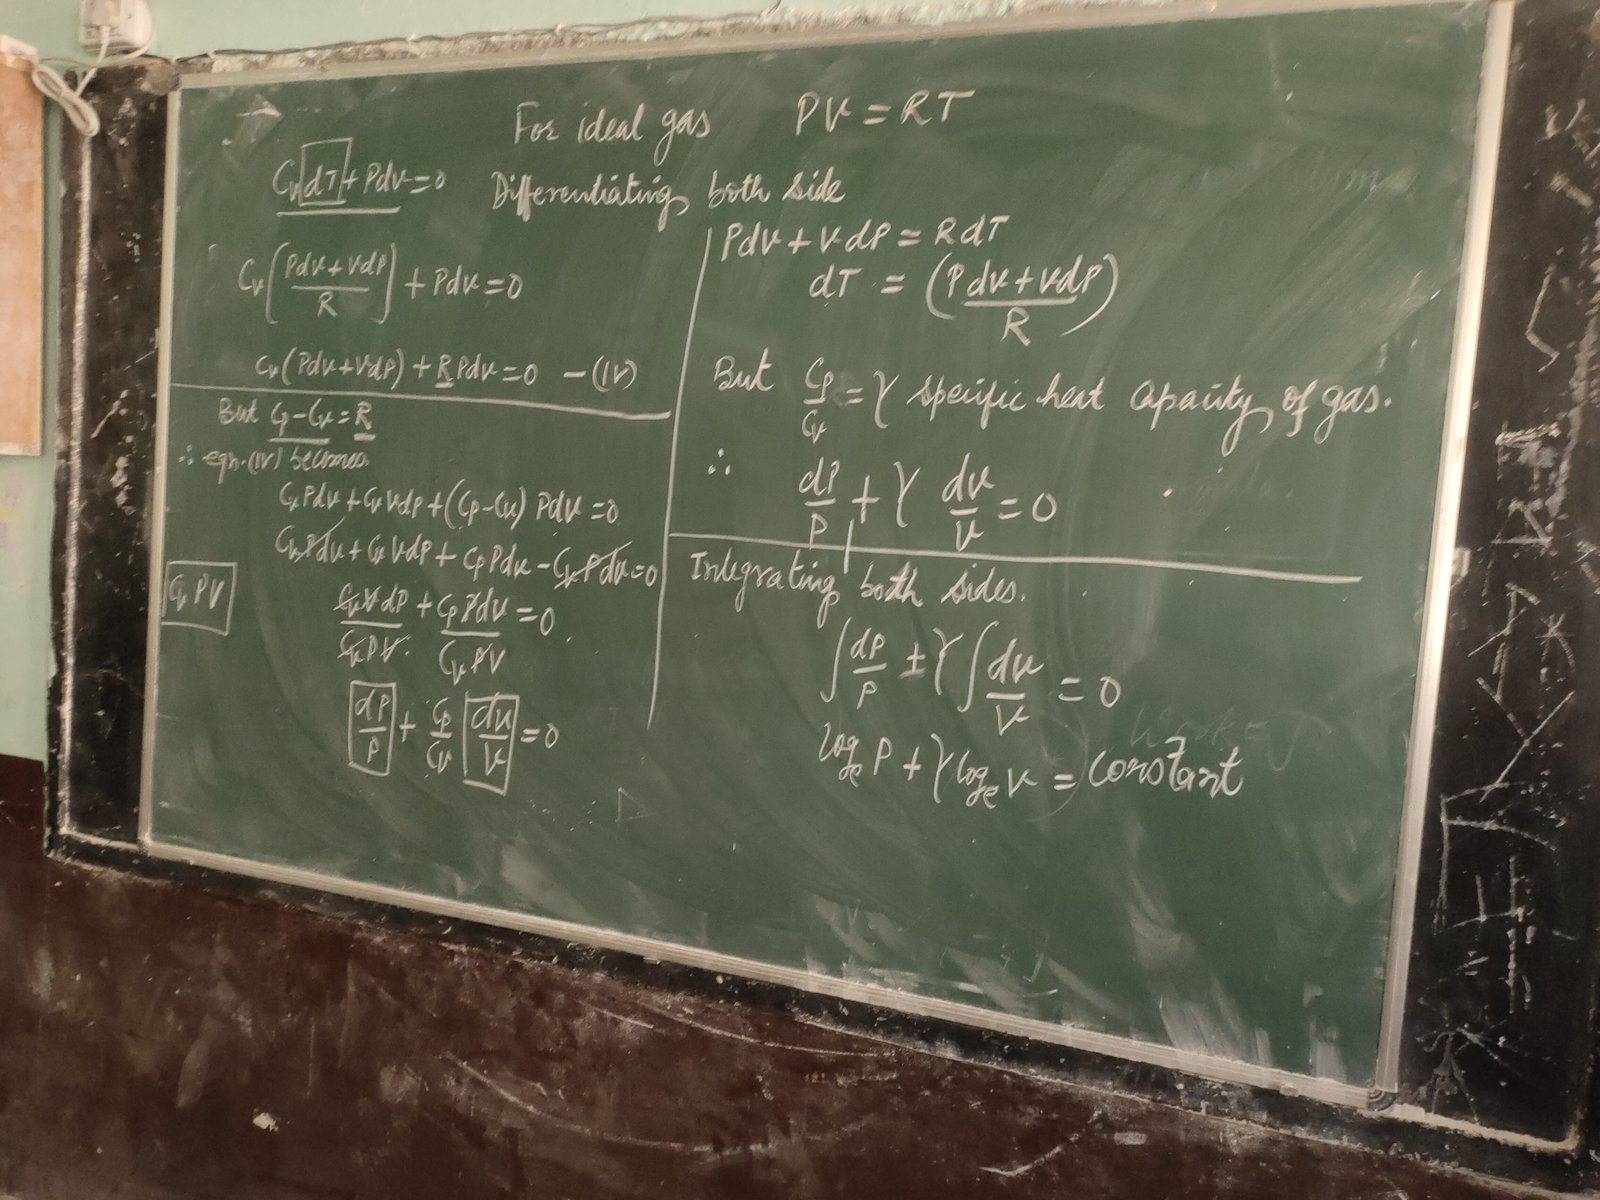 For ideal gas PV = RT
Cv dT + Pdv = 0
Differentiating both side
Cv (Pdv + Vdp / R) + Pdv = 0
Cv (Pdv + Vdp) + R Pdv = 0 — (IV)
But Cp - Cv = R
∴ eqn. (IV) becomes
Cv Pdv + Cv Vdp + (Cp - Cv) Pdv = 0
Cv Pdv + Cv Vdp + Cp Pdv - Cv Pdv = 0
Cv PV
Cv V dP / Cv P V + Cp P dv / Cv P V = 0
dP/P + Cp/Cv dv/V = 0
Pdv + Vdp = RdT
dT = (Pdv + Vdp / R)
But Cp/Cv = γ specific heat capacity of gas.
∴ dP/P + γ dv/V = 0
Integrating both sides.
∫ dP/P ± γ ∫ dv/V = 0
loge P + γ loge V = Constant